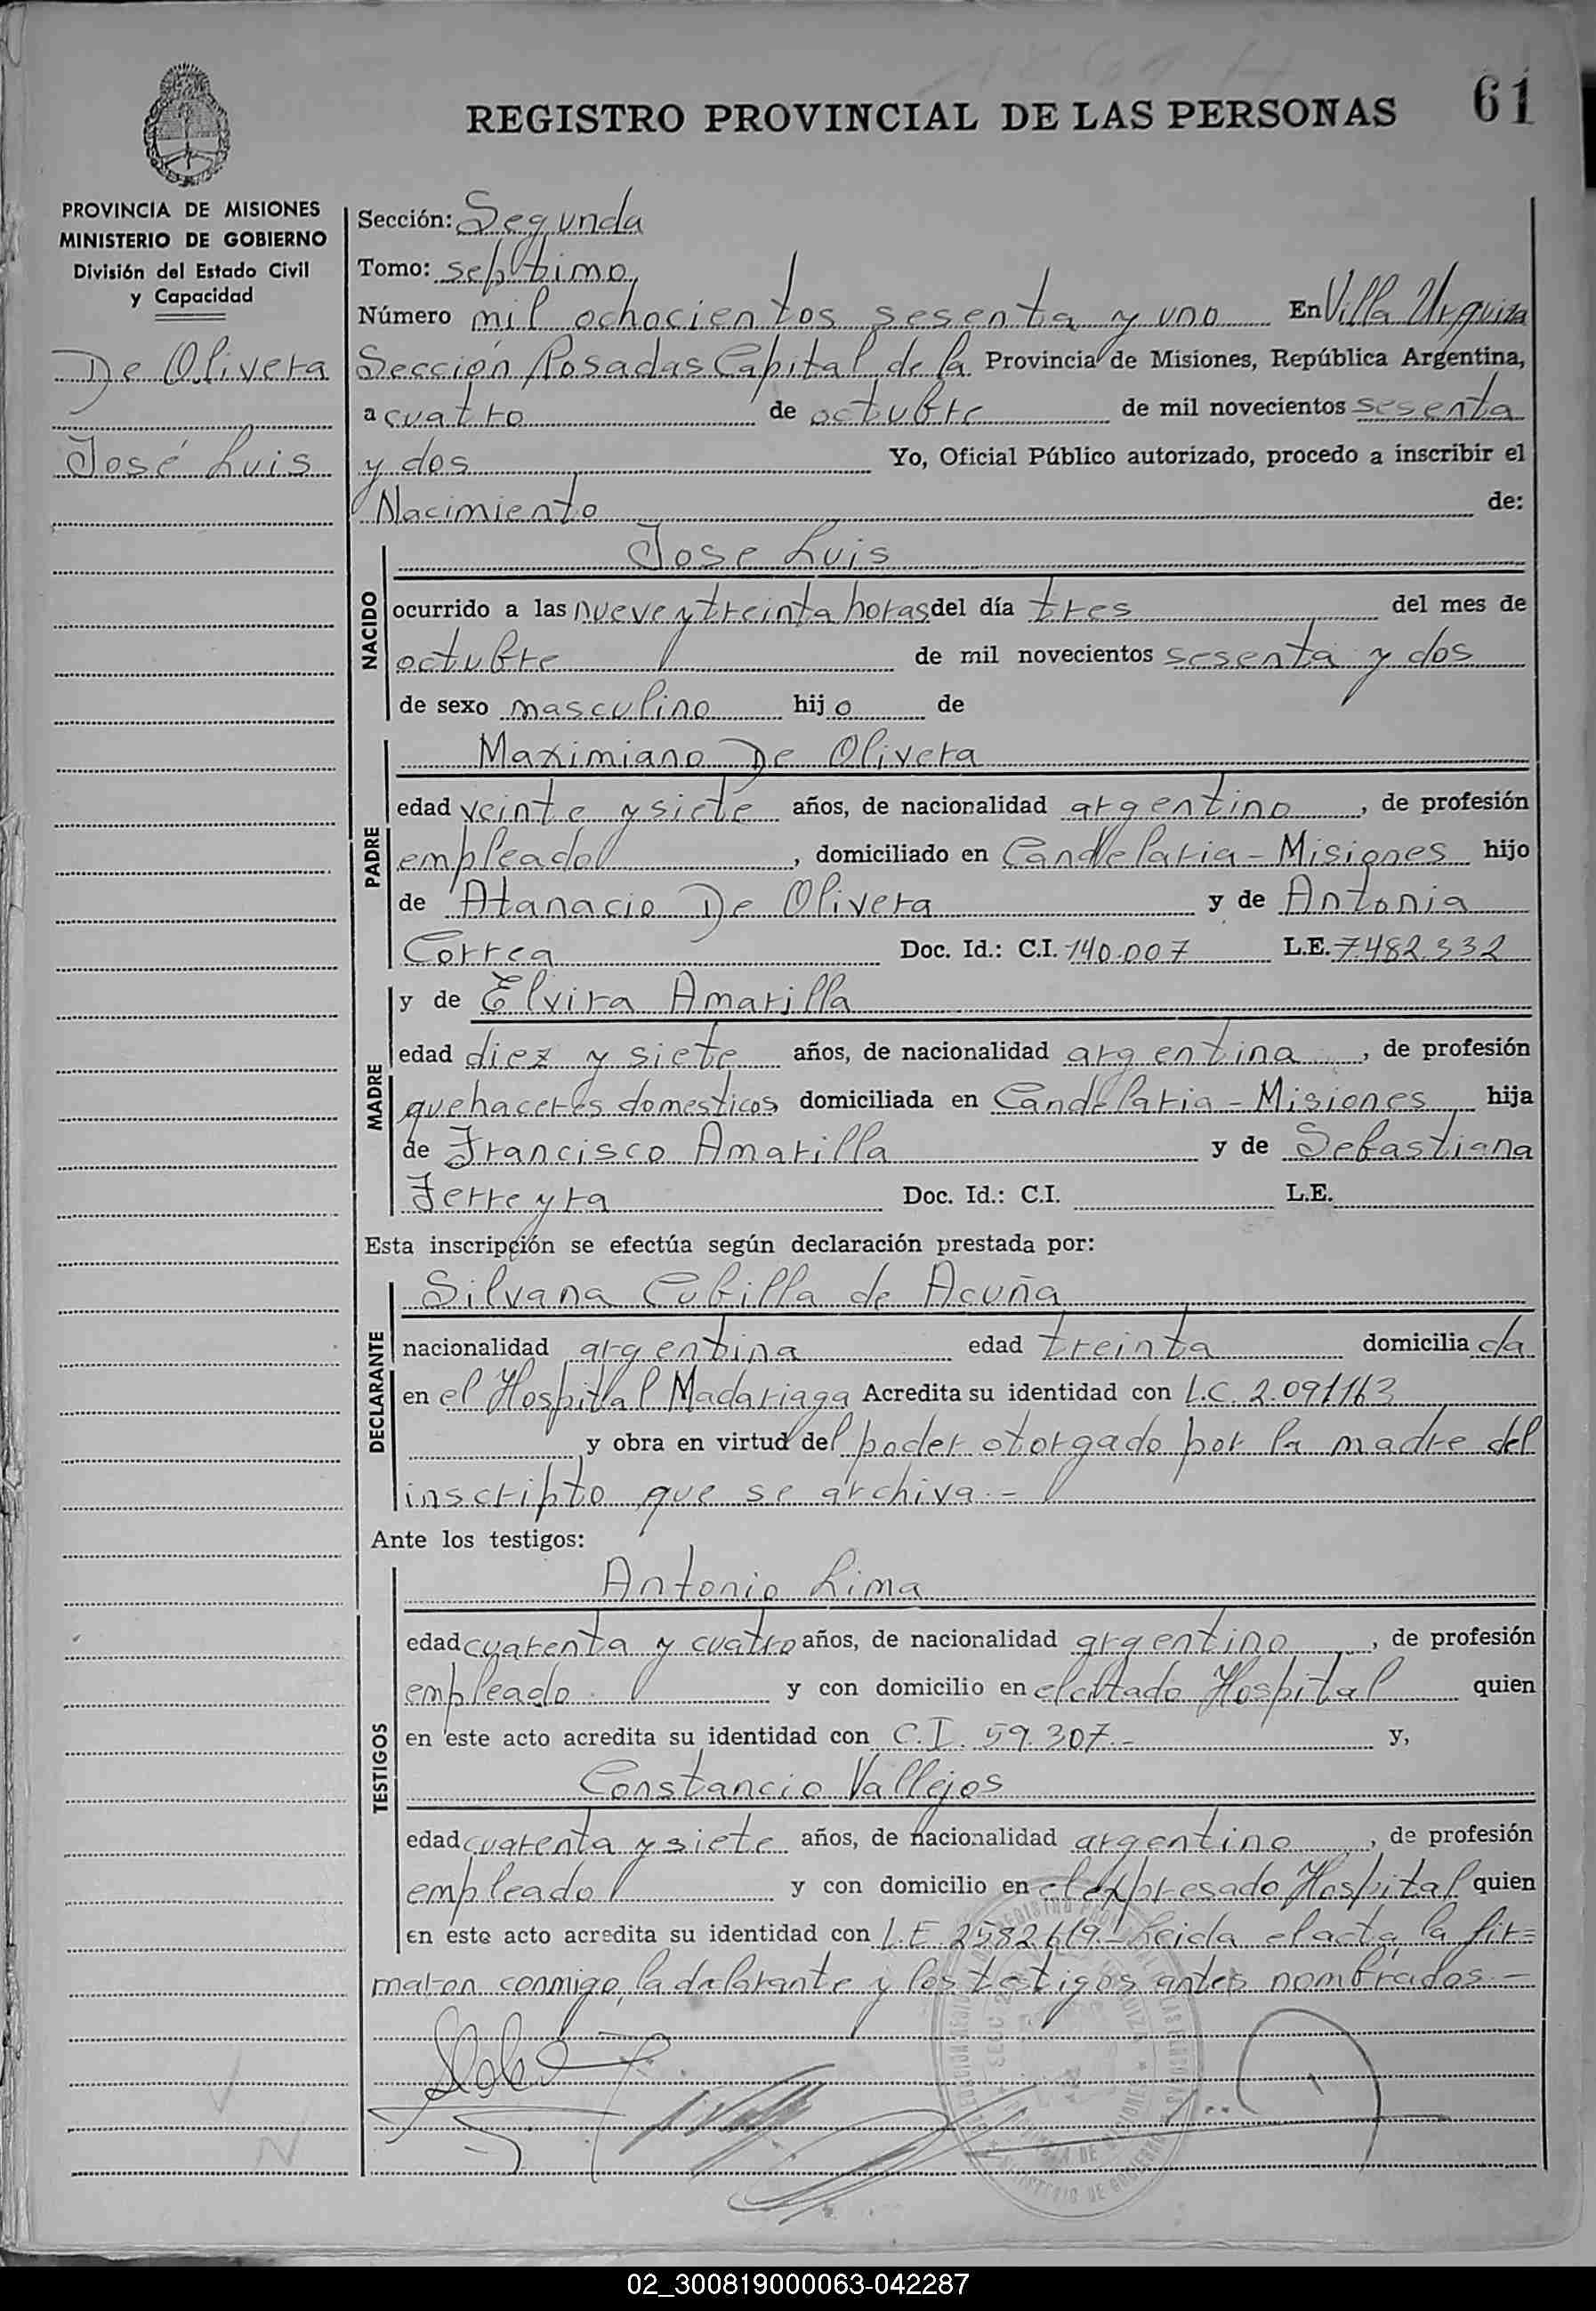 REGISTRO PROVINCIAL DE LAS PERSONAS 61
PROVINCIA DE MISIONES
MINISTERIO DE GOBIERNO
División del Estado Civil
y Capacidad
De Olivera
José Luis
Sección: Segunda
Tomo: septimo
Número mil ochocientos sesenta y uno En Villa Urquiza
Sección Posadas Capital de la Provincia de Misiones, República Argentina,
a cuatro de octubre de mil novecientos sesenta
y dos Yo, Oficial Público autorizado, procedo a inscribir el
Nacimiento de:
NACIDO
Jose Luis
ocurrido a las nueve y treinta horas del día tres del mes de
octubre de mil novecientos sesenta y dos
de sexo masculino hijo de
PADRE
Maximiano De Olivera
edad veinte y siete años, de nacionalidad argentino, de profesión
empleado, domiciliado en Candelaria - Misiones hijo
de Atanacio De Olivera y de Antonia
Correa Doc. Id.: C.I. 140.007 L.E. 7.482.332
MADRE
y de Elvira Amarilla
edad diez y siete años, de nacionalidad argentina, de profesión
quehaceres domesticos domiciliada en Candelaria - Misiones hija
de Francisco Amarilla y de Sebastiana
Ferreyra Doc. Id.: C.I. L.E.
Esta inscripción se efectúa según declaración prestada por:
DECLARANTE
Silvana Cubilla de Acuña
nacionalidad argentina edad treinta domiciliada
en el Hospital Madariaga Acredita su identidad con L.C. 2.091163
y obra en virtud del poder otorgado por la madre del
inscripto que se archiva.-
Ante los testigos:
TESTIGOS
Antonio Lima
edad cuarenta y cuatro años, de nacionalidad argentino, de profesión
empleado y con domicilio en el citado Hospital quien
en este acto acredita su identidad con C.I. 59.307.- y,
Constancio Vallejos
edad cuarenta y siete años, de nacionalidad argentino, de profesión
empleado y con domicilio en el expresado Hospital quien
en este acto acredita su identidad con L.E 2582619.- Leida el acta, la fir=
maron conmigo, la declarante y los testigos antes nombrados.-
02_300819000063-042287